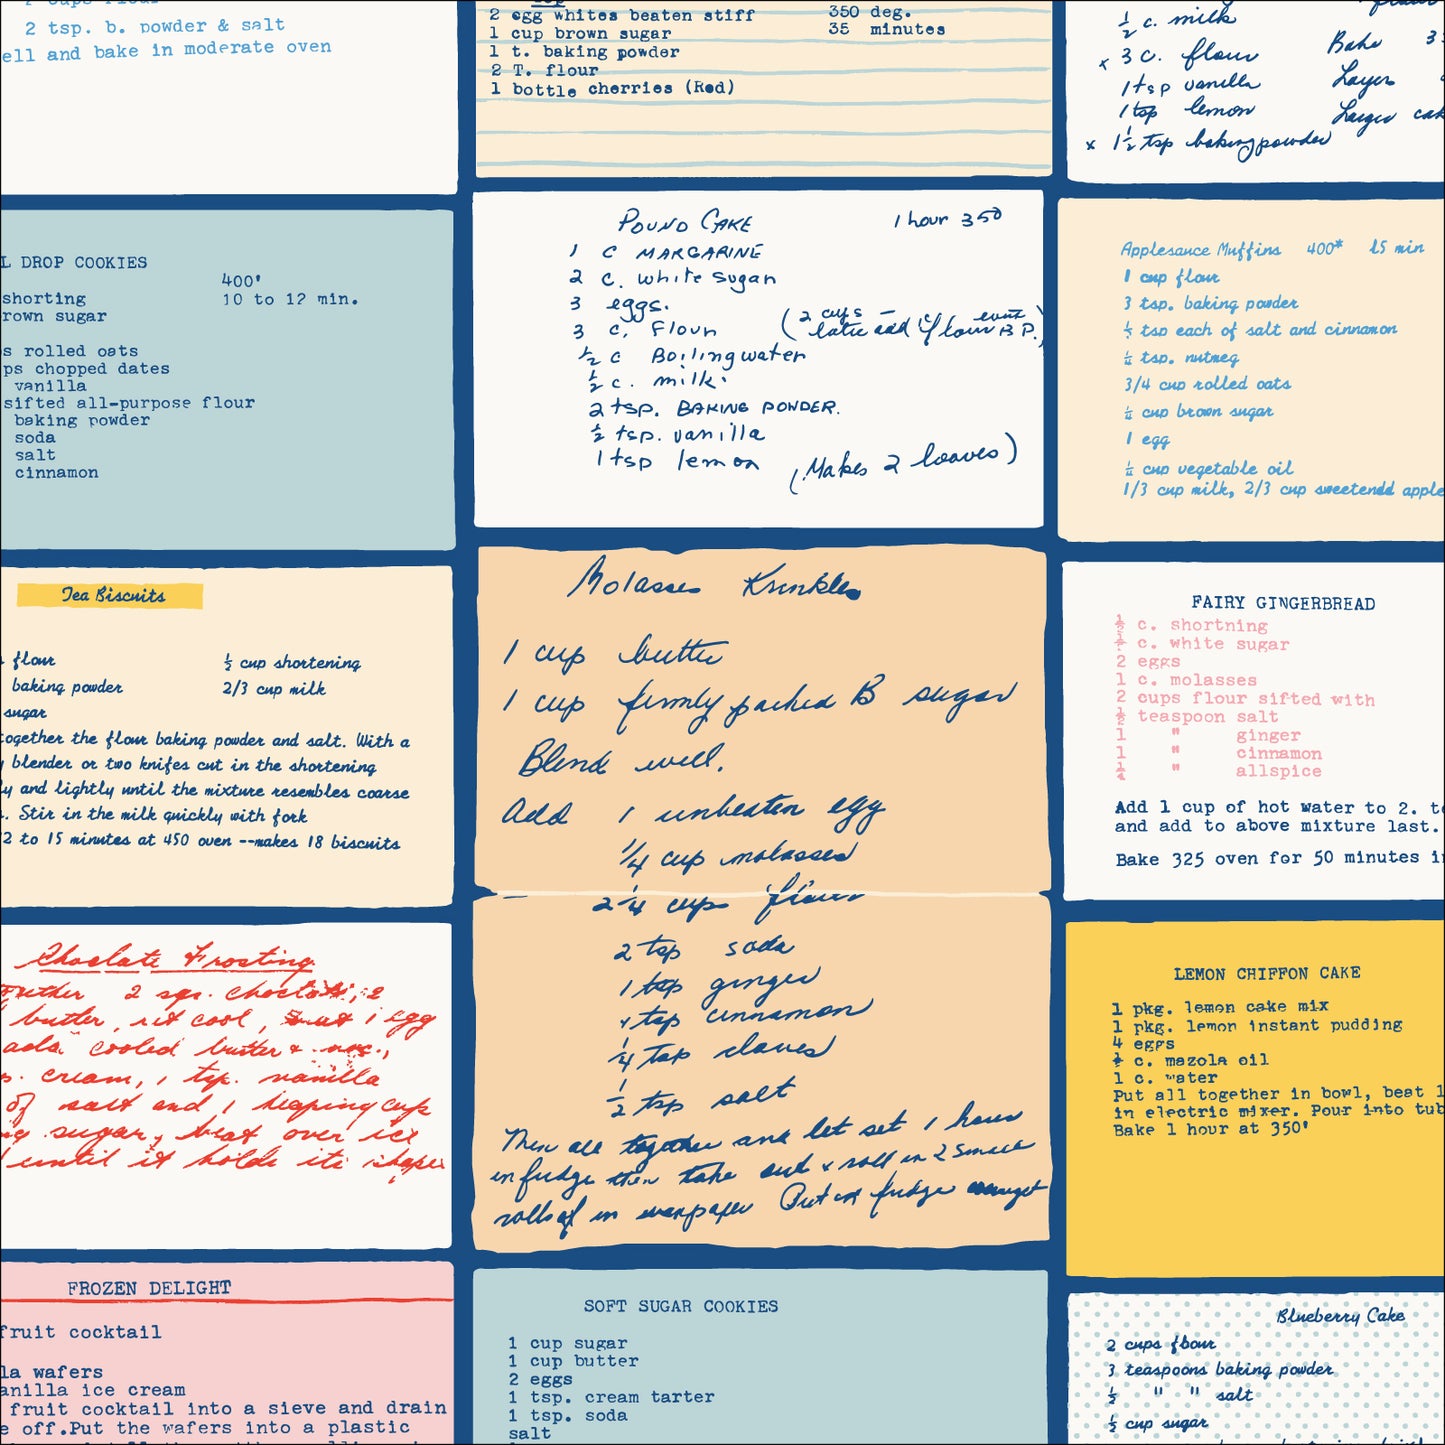 2 tsp. b. powder & salt
ell and bake in moderate oven
2 egg whites beaten stiff 350 deg.
1 cup brown sugar 35 minutes
1 t. baking powder
2 T. flour
1 bottle cherries (Red)
½ c. milk
x 3 c. flour Bake 3
1 tsp vanilla Layer
1 tsp lemon Larger cak
x 1½ tsp baking powder
L DROP COOKIES
400'
shorting 10 to 12 min.
rown sugar
s rolled oats
ps chopped dates
vanilla
sifted all-purpose flour
baking powder
soda
salt
cinnamon
POUND CAKE 1 hour 350
1 C MARGARINE
2 c. white sugar
3 eggs.
3 c. Flour (2 cups
½ c Boiling water
½ c. milk.
2 tsp. BAKING POWDER.
½ tsp. vanilla
1 tsp lemon (Makes 2 loaves)
Applesauce Muffins 400* 15 min
1 cup flour
3 tsp. baking powder
½ tsp each of salt and cinnamon
tsp. nutmeg
3/4 cup rolled oats
cup brown sugar
1 egg
cup vegetable oil
1/3 cup milk, 2/3 cup sweetendd apple
Tea Biscuits
flour ½ cup shortening
baking powder 2/3 cup milk
sugar
together the flour baking powder and salt. With a
y blender or two knifes cut in the shortening
ly and lightly until the mixture resembles coarse
. Stir in the milk quickly with fork
12 to 15 minutes at 450 oven --makes 18 biscuits
Molasses Krinkles
1 cup butter
1 cup firmly packed B sugar
Blend well.
Add 1 unbeaten egg
1/4 cup molasses
2¼ cups flour
2 tsp soda
1 tsp ginger
1 tsp cinnamon
¼ tsp cloves
½ tsp salt
Then all together and let set 1 hour
in fridge then take out & roll in 2 small
rolls in wax paper Put in fridge
FAIRY GINGERBREAD
½ c. shortning
½ c. white sugar
2 eggs
1 c. molasses
2 cups flour sifted with
½ teaspoon salt
1 " ginger
1 " cinnamon
¼ " allspice
Add 1 cup of hot water to 2. t
and add to above mixture last.
Bake 325 oven for 50 minutes i
Choclate Frosting
2 sqs. choclate,
butter, let cool, 1 egg
add cooled butter &
cream, 1 tsp. vanilla
of salt and 1 heaping cup
sugar, beat over ice
until it holds its shape
LEMON CHIFFON CAKE
1 pkg. lemon cake mix
1 pkg. lemon instant pudding
4 eggs
c. mazola oil
1 c. water
Put all together in bowl, beat 1
in electric mixer. Pour into tub
Bake 1 hour at 350'
FROZEN DELIGHT
fruit cocktail
la wafers
anilla ice cream
fruit cocktail into a sieve and drain
e off.Put the wafers into a plastic
SOFT SUGAR COOKIES
1 cup sugar
1 cup butter
2 eggs
1 tsp. cream tarter
1 tsp. soda
salt
Blueberry Cake
2 cups flour
3 teaspoons baking powder
½ " " salt
½ cup sugar